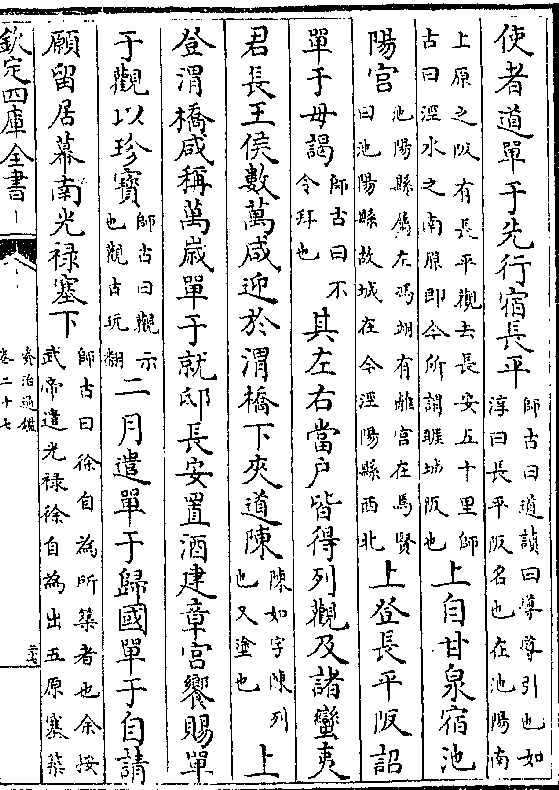 使者道單于先行宿長平師古曰道讀曰導導引也如
淳曰長平阪名也在池陽南
上原之阪有長平觀去長安五十里師
古曰涇水之南原即今所謂睢城阪也上自甘泉宿池
陽宫池陽縣屬左馮翊有離宫在焉賢
曰池陽縣故城在今涇陽縣西北上登長平阪詔
單于毋謁師古曰不
令拜也其左右當户皆得列觀及諸蠻夷
君長王侯數萬咸迎於渭橋下夾道陳陳如字陳列
也又塗也上
登渭橋咸稱萬嵗單于就邸長安置酒建章宫饗賜單
于觀以珍寳師古曰觀示
也觀古玩翻二月遣單于歸國單于自請
願留居幕南光禄塞下師古曰徐自為所築者也余按
武帝遣光禄徐自為出五原塞築
欽定四庫全書
資治通鑑
卷二十七